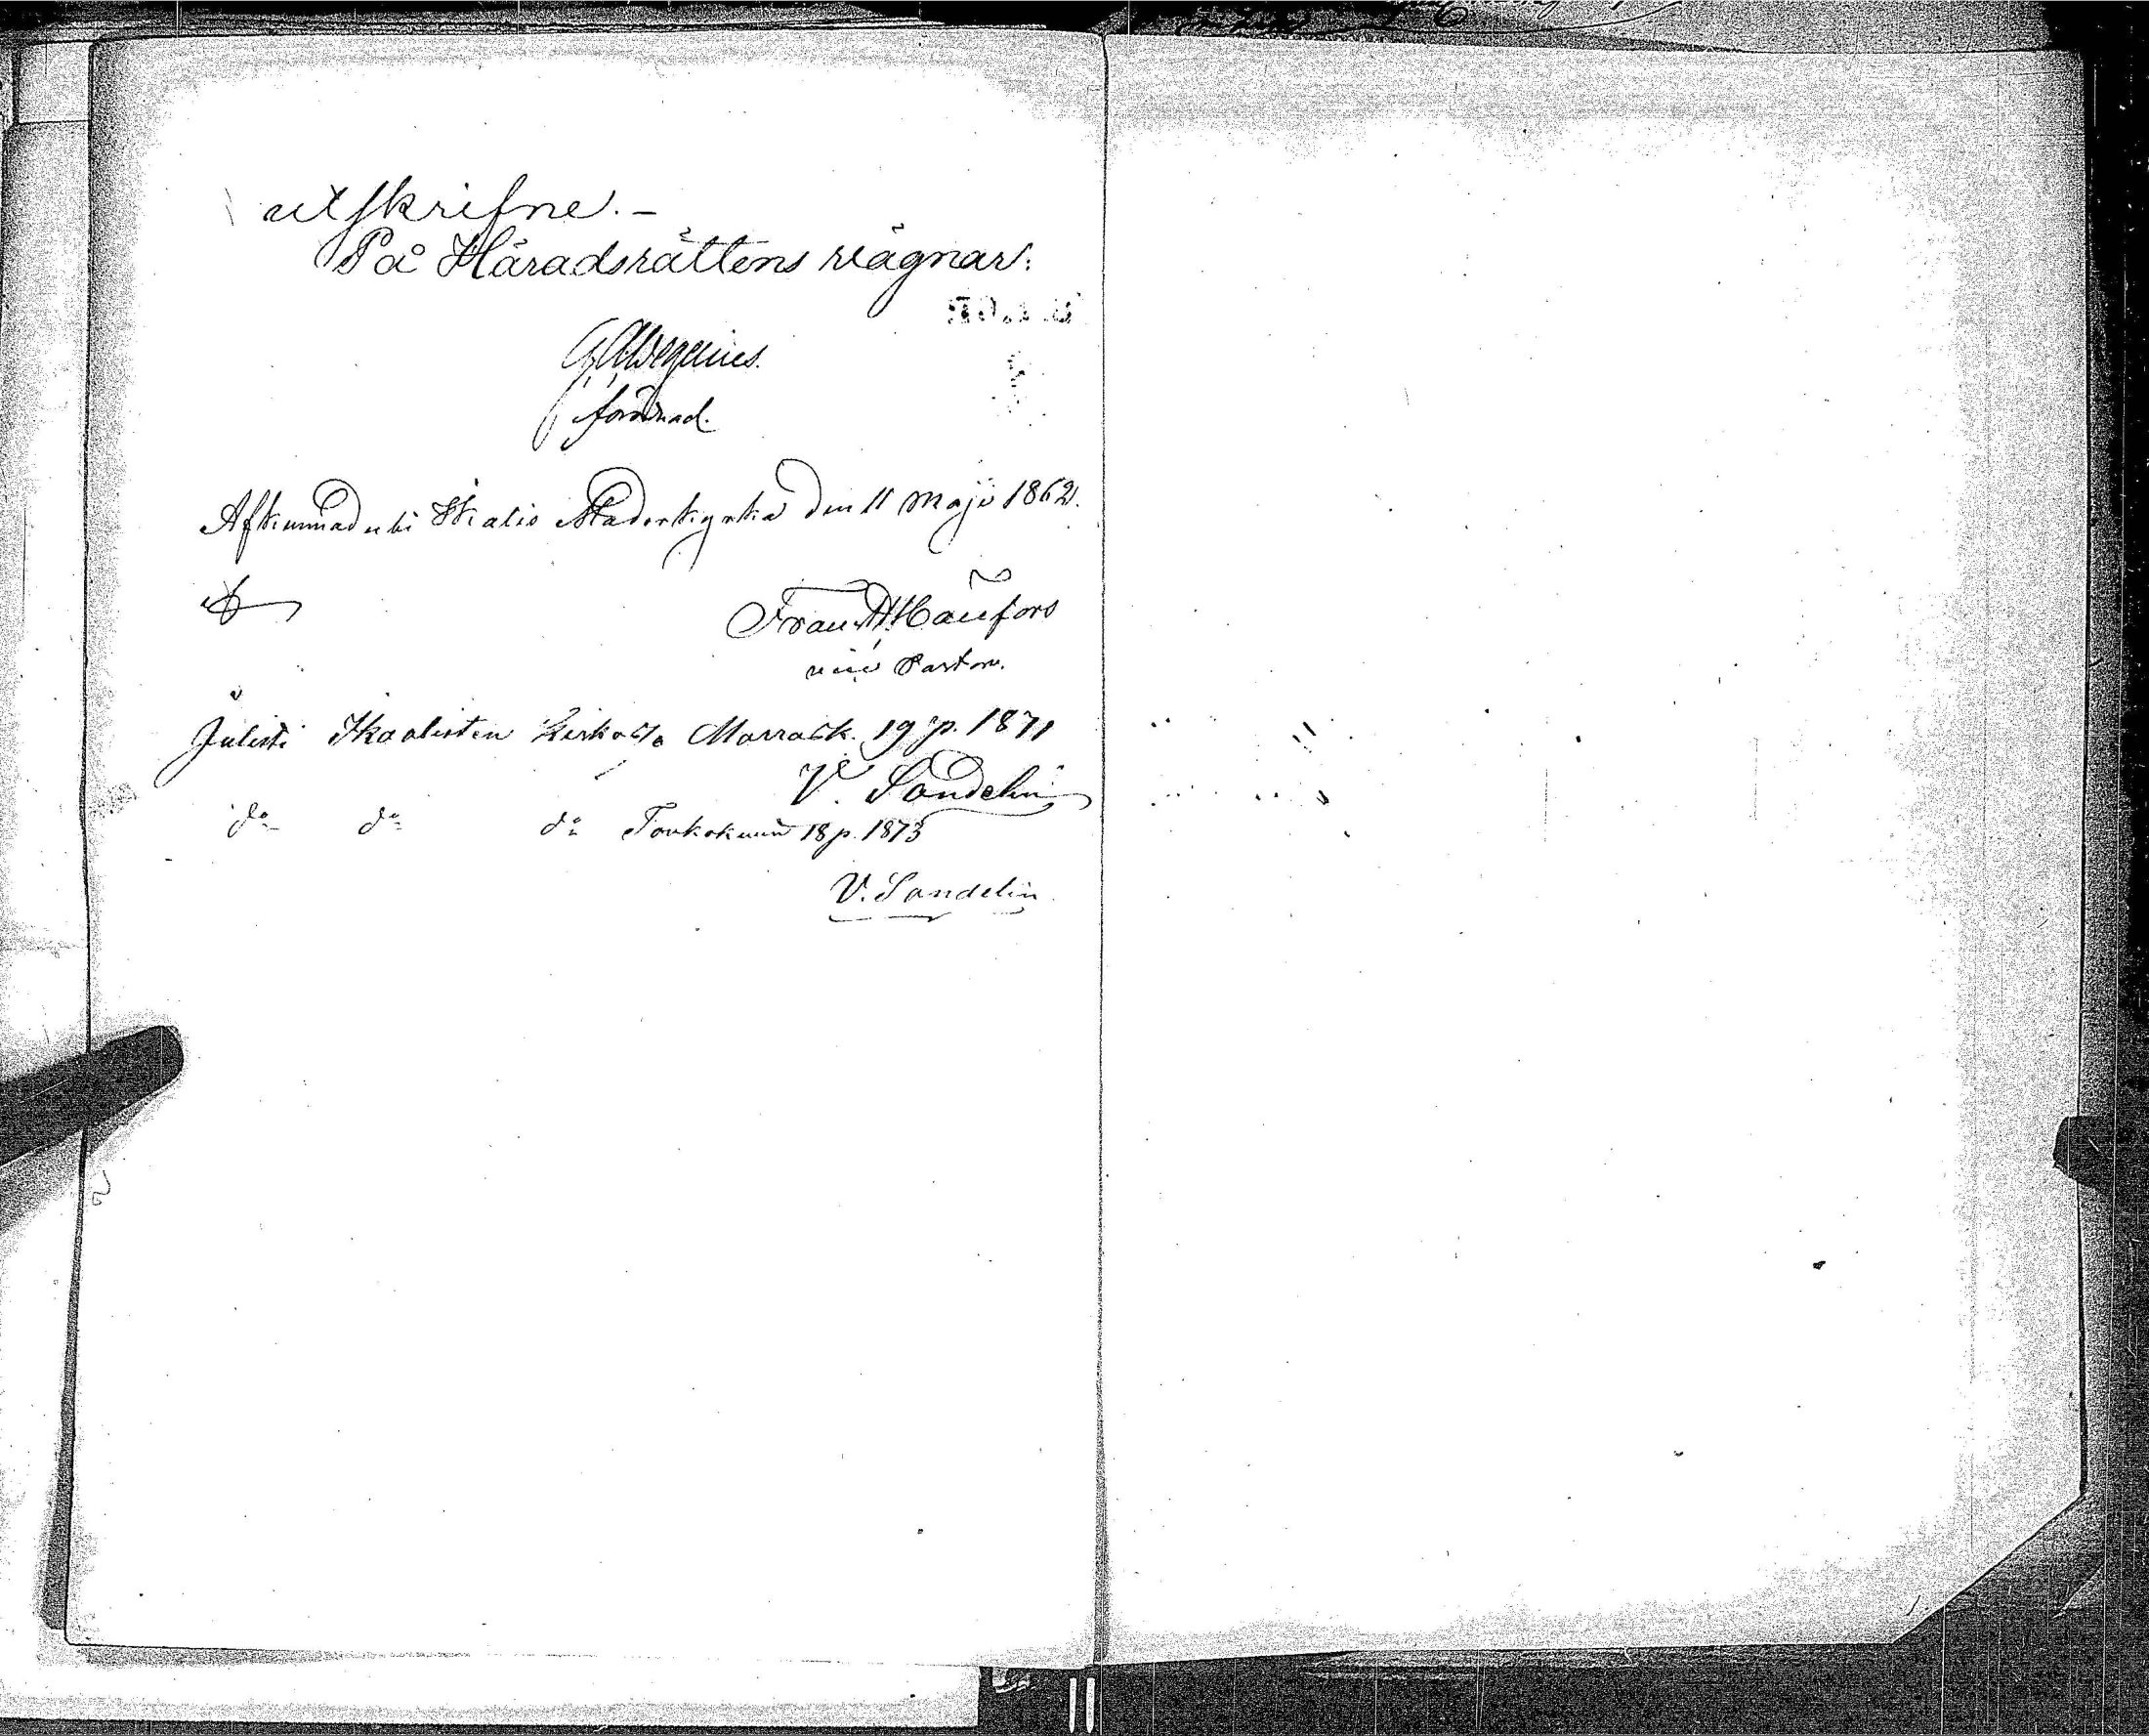 utskrifne. –
På Häradsrättens vägnar:
förordnad.
Afkunnad uti Ikalis Moderkyrka den 11 Maji 1862.
Frans H. Haufors
vice Pastor.
Julisti Ikaalisten Kirkossa Marrask. 19 p. 1871
V. Sandelin
do do do Toukokuun 18 p. 1873
V. Sandelin